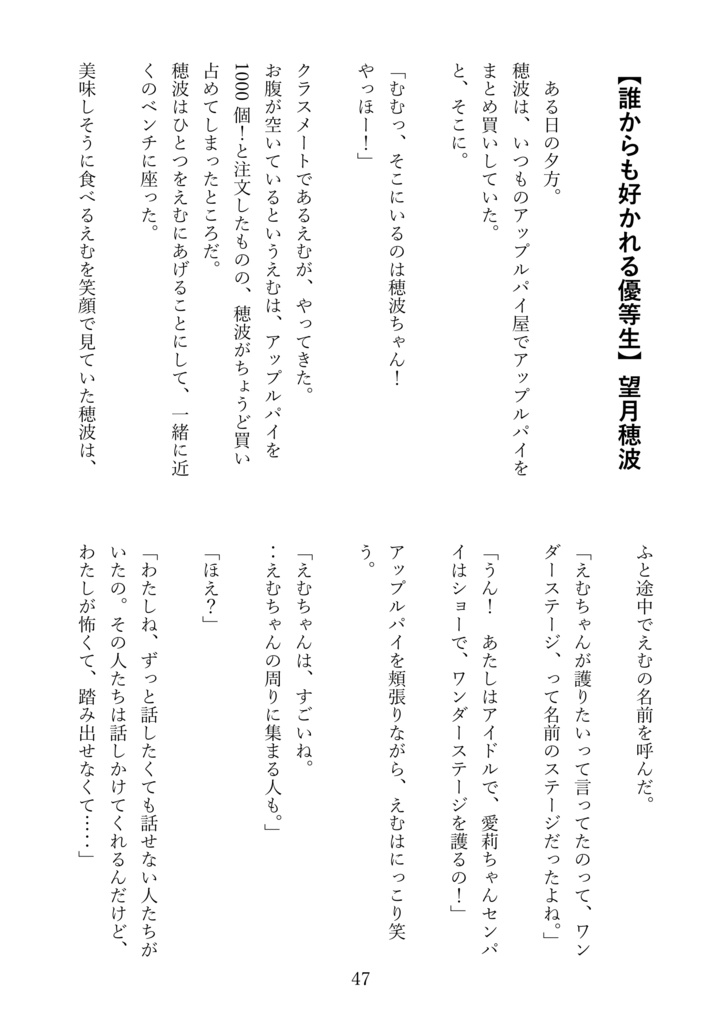 【誰からも好かれる優等生】望月穂波
ある日の夕方。
穂波は、いつものアップルパイ屋でアップルパイを
まとめ買いしていた。
と、そこに。
「むむっ、そこにいるのは穂波ちゃん！
やっほー！」
クラスメートであるえむが、やってきた。
お腹が空いているというえむは、アップルパイを
1000個！と注文したものの、穂波がちょうど買い
占めてしまったところだ。
穂波はひとつをえむにあげることにして、一緒に近
くのベンチに座った。
美味しそうに食べるえむを笑顔で見ていた穂波は、
ふと途中でえむの名前を呼んだ。
「えむちゃんが護りたいって言ってたのって、ワン
ダーステージ、って名前のステージだったよね。」
「うん！　あたしはアイドルで、愛莉ちゃんセンパ
イはショーで、ワンダーステージを護るの！」
アップルパイを頬張りながら、えむはにっこり笑
う。
「えむちゃんは、すごいね。
：えむちゃんの周りに集まる人も。」
「ほえ？」
「わたしね、ずっと話したくても話せない人たちが
いたの。その人たちは話しかけてくれるんだけど、
わたしが怖くて、踏み出せなくて……」
47